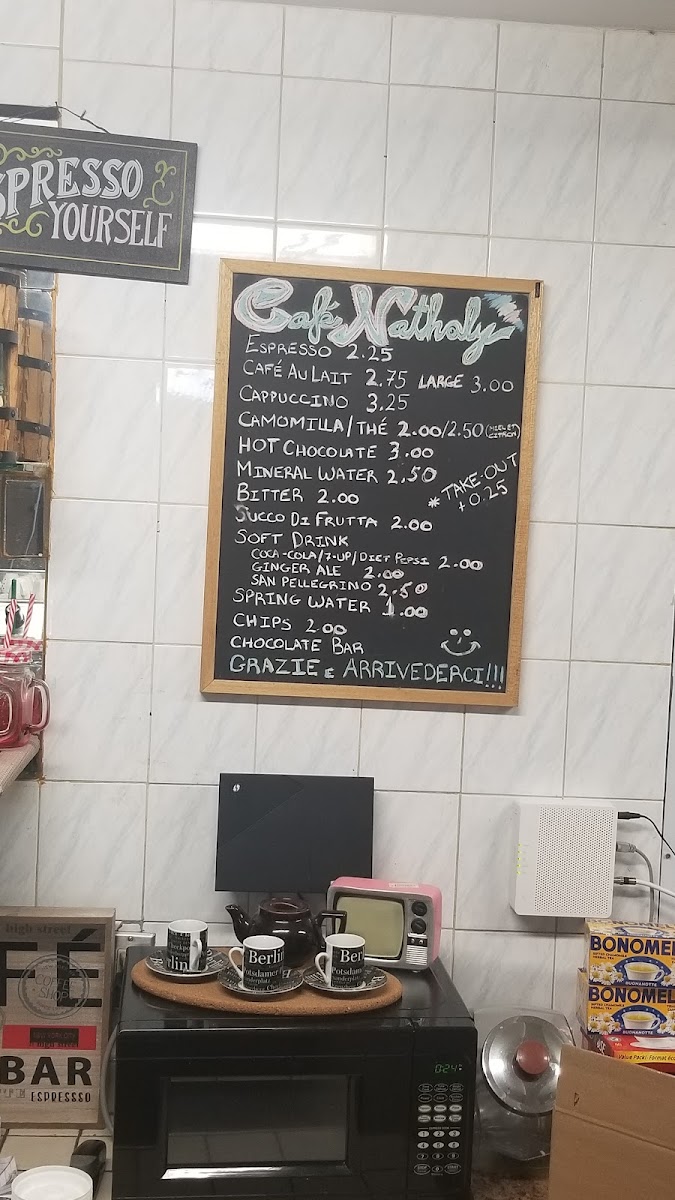 ESPRESSO
YOURSELF
Café Nathaly
ESPRESSO 2.25
CAFÉ AU LAIT 2.75 LARGE 3.00
CAPPUCCINO 3.25
CAMOMILLA/THÉ 2.00/2.50 (MIEL ET CITRON)
HOT CHOCOLATE 3.00
MINERAL WATER 2.50
* TAKE-OUT
+0.25
BITTER 2.00
SUCCO DI FRUTTA 2.00
SOFT DRINK
COCA-COLA/7-UP/DIET PEPSI 2.00
GINGER ALE 2.00
SAN PELLEGRINO 2.50
SPRING WATER 1.00
CHIPS 2.00
CHOCOLATE BAR
GRAZIE E ARRIVEDERCI!!!
Berlin
Potsdamer
Berlin
Potsdamer
high street
FÉ
COFFEE
SHOP
BAR
ESPRESSSO
0:24
BONOMEL
BUONANOTTE
BONOMEL
BUONANOTTE
Value Pack!